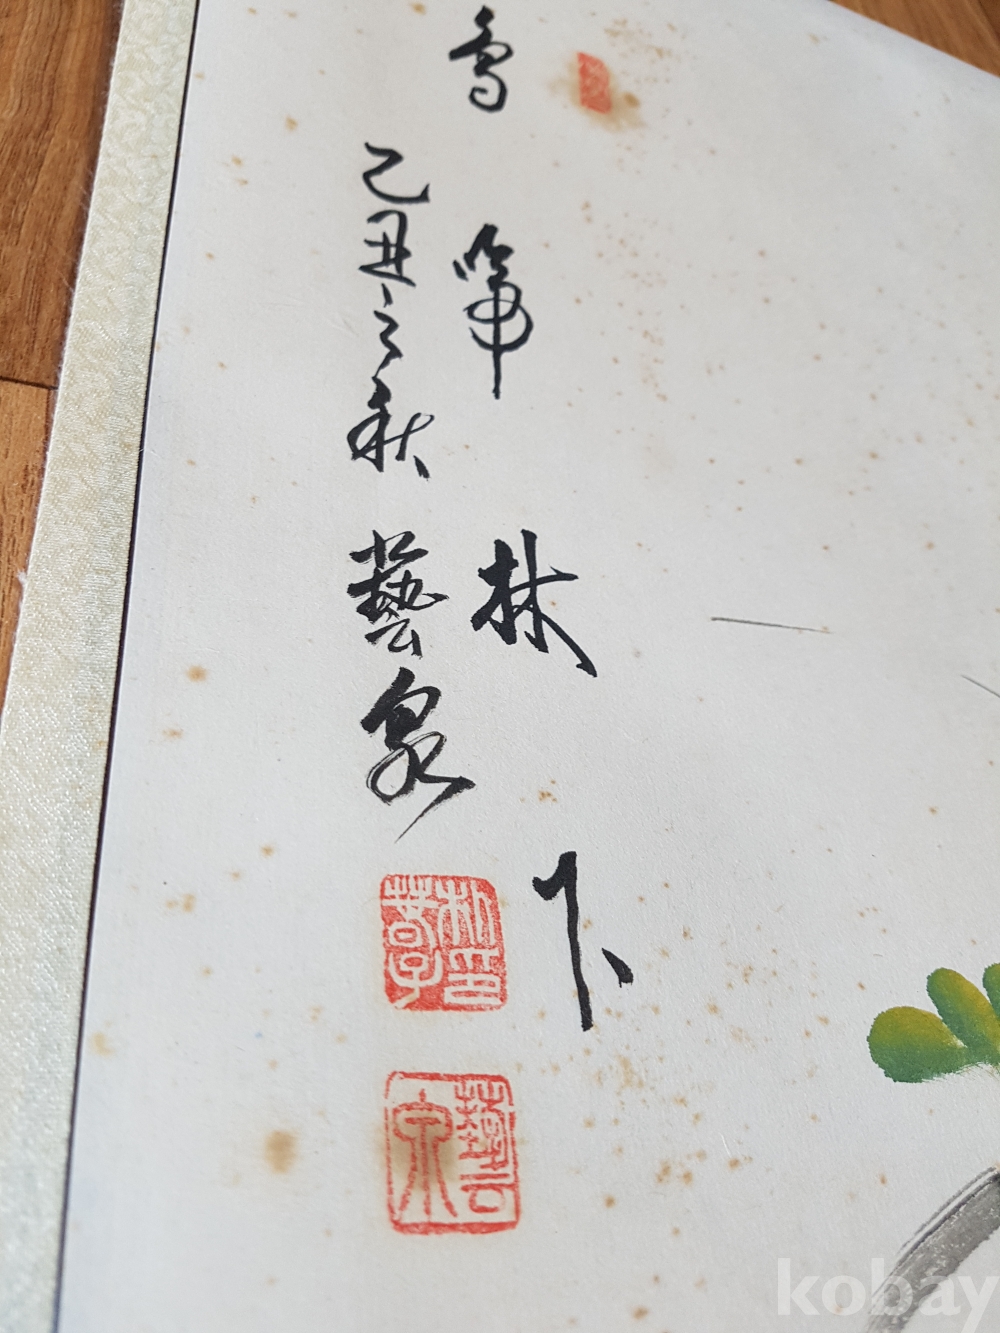 鳥啼林下
乙丑之秋 藝泉
藝泉
kobay